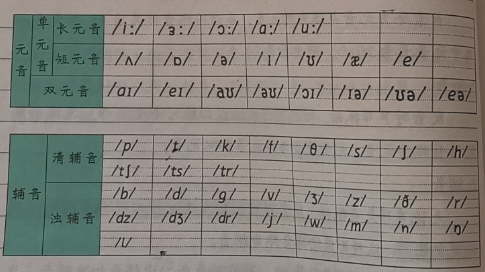 元音 单元音 长元音 /i:/ /ɜ:/ /ɔ:/ /ɑ:/ /u:/
短元音 /ʌ/ /ɒ/ /ə/ /ɪ/ /ʊ/ /æ/ /e/
双元音 /aɪ/ /eɪ/ /aʊ/ /əʊ/ /ɔɪ/ /ɪə/ /ʊə/ /eə/
辅音 清辅音 /p/ /t/ /k/ /f/ /θ/ /s/ /ʃ/ /h/
/tʃ/ /ts/ /tr/
浊辅音 /b/ /d/ /g/ /v/ /ʒ/ /z/ /ð/ /r/
/dz/ /dʒ/ /dr/ /j/ /w/ /m/ /n/ /ŋ/
/l/